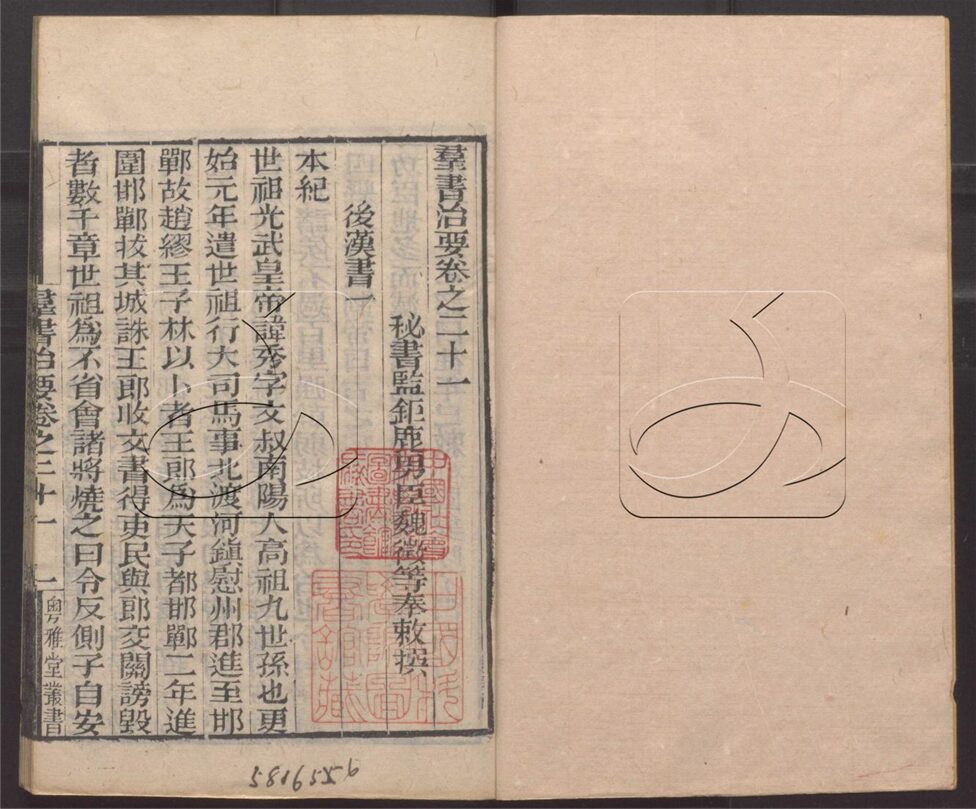 羣書治要卷之二十一
秘書監鉅鹿男臣魏徵等奉敕撰
後漢書一
本紀
世祖光武皇帝諱秀字文叔南陽人高祖九世孫也更
始元年遣世祖行大司馬事北渡河鎮慰州郡進至邯
鄲故趙繆王子林以卜者王郎爲天子都邯鄲二年進
圍邯鄲拔其城誅王郎收文書得吏民與郎交關謗毀
者數千章世祖爲不省會諸將燒之曰令反側子自安
羣書治要卷之二十一 一 粵雅堂叢書
5816556